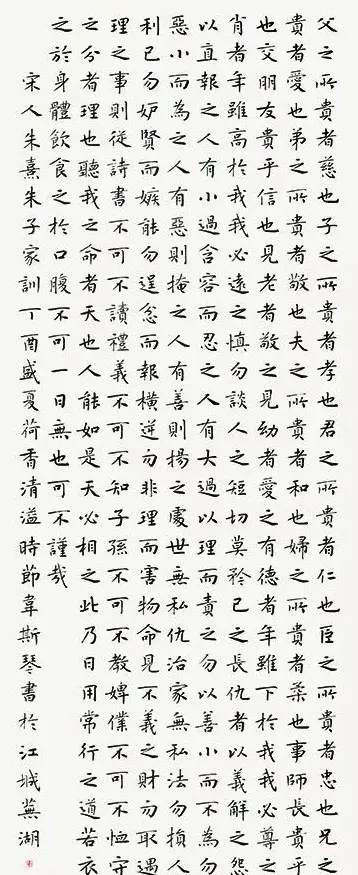 父之所貴者慈也子之所貴者孝也君之所貴者仁也臣之所貴者忠也兄之
貴者愛也弟之所貴者敬也夫之所貴者和也婦之所貴者柔也事師長貴乎
也交朋友貴乎信也見老者敬之見幼者愛之有德者年雖下於我我必尊之
肖者年雖高於我我必遠之慎勿談人之短切莫矜己之長仇者以義解之怨
以直報之人有小過含容而忍之人有大過以理而責之勿以善小而不為勿
惡小而為之人有惡則掩之人有善則揚之處世無私仇治家無私法勿損人
利己勿妒賢而嫉能勿逞忿而報橫逆勿非理而害物命見不義之財勿取遇
理之事則從詩書不可不讀禮義不可不知子孫不可不教婢僕不可不恤守
之分者理也聽我之命者天也人能如是天必相之此乃日用常行之道若衣
之於身體飲食之於口腹不可一日無也可不謹哉
宋人朱熹朱子家訓丁酉盛夏荷香清溢時節韋斯琴書於江城蕪湖